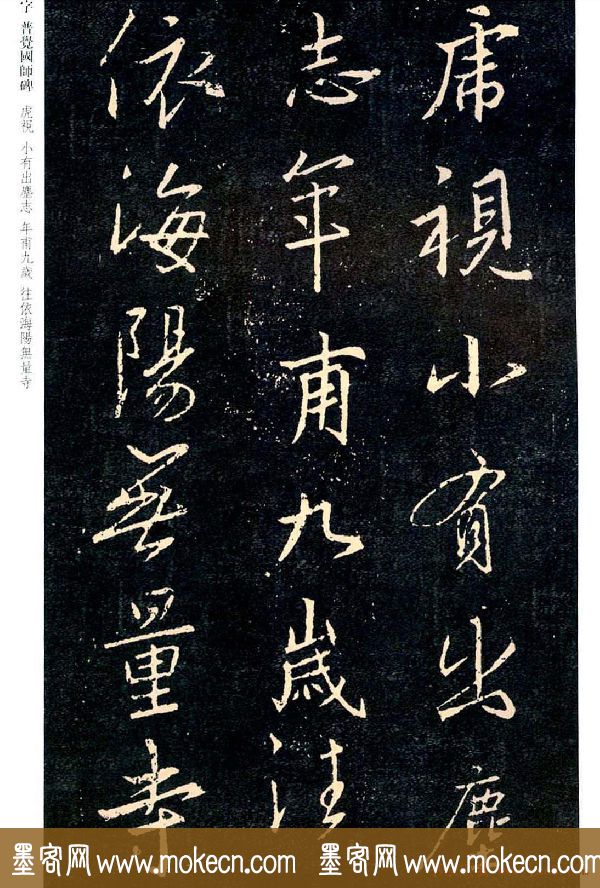 虎視小有出塵
志年甫九歲往
依海陽無量寺
字 普覺國師碑 虎視 小有出塵志 年甫九歲 往依海陽無量寺
墨客网 www.mokecn.com 墨客网 www.mokecn.com